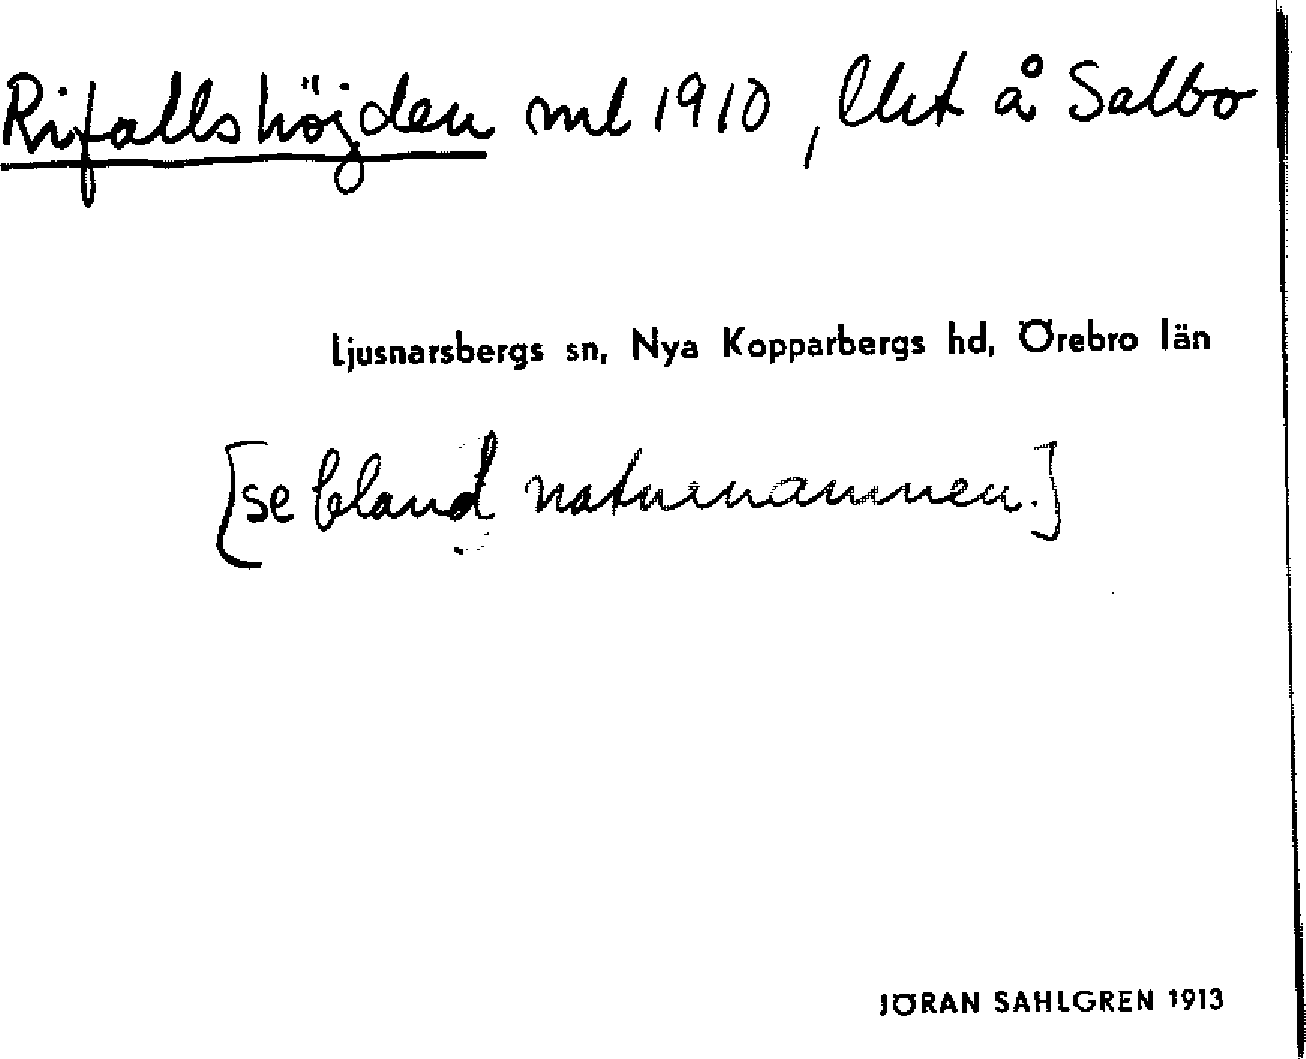 Rifallshöjden ml 1910, lht å Salbo
Ljusnarsbergs sn, Nya Kopparbergs hd, Örebro län
[se bland naturnamnen.]
JÖRAN SAHLGREN 1913